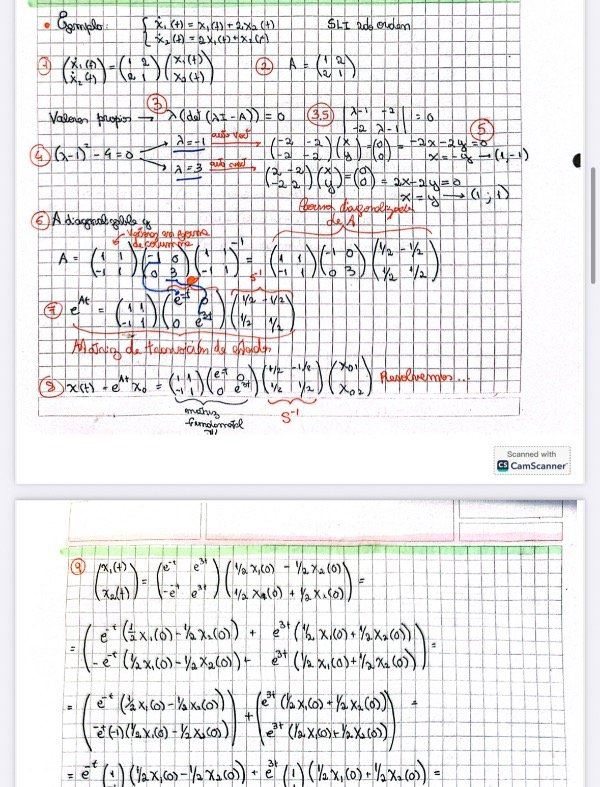 • Ejemplo: { ẋ₁(t) = x₁(t) + 2x₂(t) SLI 2do orden
{ ẋ₂(t) = 2x₁(t) + x₂(t)
① (ẋ₁(t) ẋ₂(t)) = (1 2 2 1) (x₁(t) x₂(t)) ② A = (1 2 2 1)
Valores propios → ③ λ(det(λI - A)) = 0 3,5 |λ-1 -2 -2 λ-1| = 0
④ (λ-1)² - 4 = 0 λ = -1 auto vect (-2 -2 -2 -2) (x y) = (0 0) = -2x - 2y = 0 x = -y → (1,-1) ⑤
λ = 3 auto vect (2 -2 -2 2) (x y) = (0 0) = 2x - 2y = 0 x = y → (1;1)
⑥ A diagonalizable y forma diagonalizada de A
Vectores en forma de columnas
A = (1 1 -1 1) (-1 0 0 3) (1 1 -1 1)⁻¹ = (1 1 -1 1) (-1 0 0 3) (1/2 -1/2 1/2 1/2)
S⁻¹
⑦ e^At = (1 1 -1 1) (e^-t 0 0 e^3t) (1/2 -1/2 1/2 1/2)
Matriz de transición de estados
⑧ x(t) = e^At x₀ = (1 1 -1 1) (e^-t 0 0 e^3t) (1/2 -1/2 1/2 1/2) (x₀₁ x₀₂) Resolvemos...
matriz fundamental S⁻¹
Scanned with
CS CamScanner
⑨ (x₁(t) x₂(t)) = (e^-t e^3t -e^-t e^3t) (1/2 x₁(0) - 1/2 x₂(0) 1/2 x₁(0) + 1/2 x₂(0)) =
= (e^-t (1/2 x₁(0) - 1/2 x₂(0)) + e^3t (1/2 x₁(0) + 1/2 x₂(0))
-e^-t (1/2 x₁(0) - 1/2 x₂(0)) + e^3t (1/2 x₁(0) + 1/2 x₂(0))) =
= (e^-t (1/2 x₁(0) - 1/2 x₂(0)) e^-t (-1) (1/2 x₁(0) - 1/2 x₂(0))) + (e^3t (1/2 x₁(0) + 1/2 x₂(0)) e^3t (1/2 x₁(0) + 1/2 x₂(0))) =
= e^-t (1/2 x₁(0) - 1/2 x₂(0)) + e^3t (1 1) (1/2 x₁(0) + 1/2 x₂(0)) =